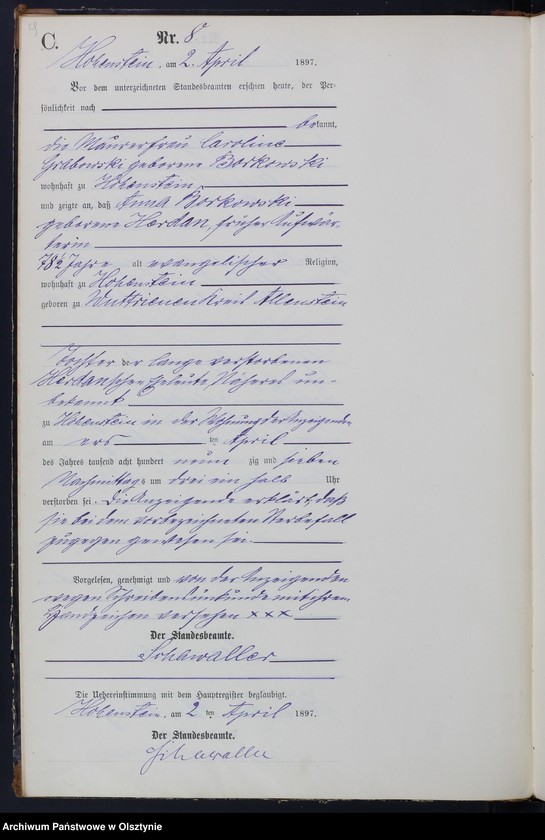 C.
Nr. 8
Hohenstein, am 2. April 1897.
Vor dem unterzeichneten Standesbeamten erschien heute, der Per-
sönlichkeit nach
bekannt,
die Maurerfrau Caroline
Grabowski geborene Borkowski
wohnhaft zu Hohenstein
und zeigte an, daß Anna Borkowski
geborene Herdan, früher Aufwär-
terin
78½ Jahre alt evangelischer Religion,
wohnhaft zu Hohenstein
geboren zu Wuttrienen Kreis Allenstein
Tochter der lange verstorbenen
Herdanschen Eheleute, Näheres un-
bekannt
zu Hohenstein in der Wohnung der Anzeigenden
am ers ten April
des Jahres tausend acht hundert neun zig und sieben
Nachmittags um drei ein halb Uhr
verstorben sei. Die Anzeigende erklärt, daß
sie bei dem vorbezeichneten Sterbefall
zugegen gewesen sei.
Vorgelesen, genehmigt und von der Anzeigenden
wegen Schreibensunkunde mit ihrem
Handzeichen versehen xxx
Der Standesbeamte.
Schawaller
Die Uebereinstimmung mit dem Hauptregister beglaubigt.
Hohenstein, am 2 ten April 1897.
Der Standesbeamte.
Schawaller
Archiwum Państwowe w Olsztynie